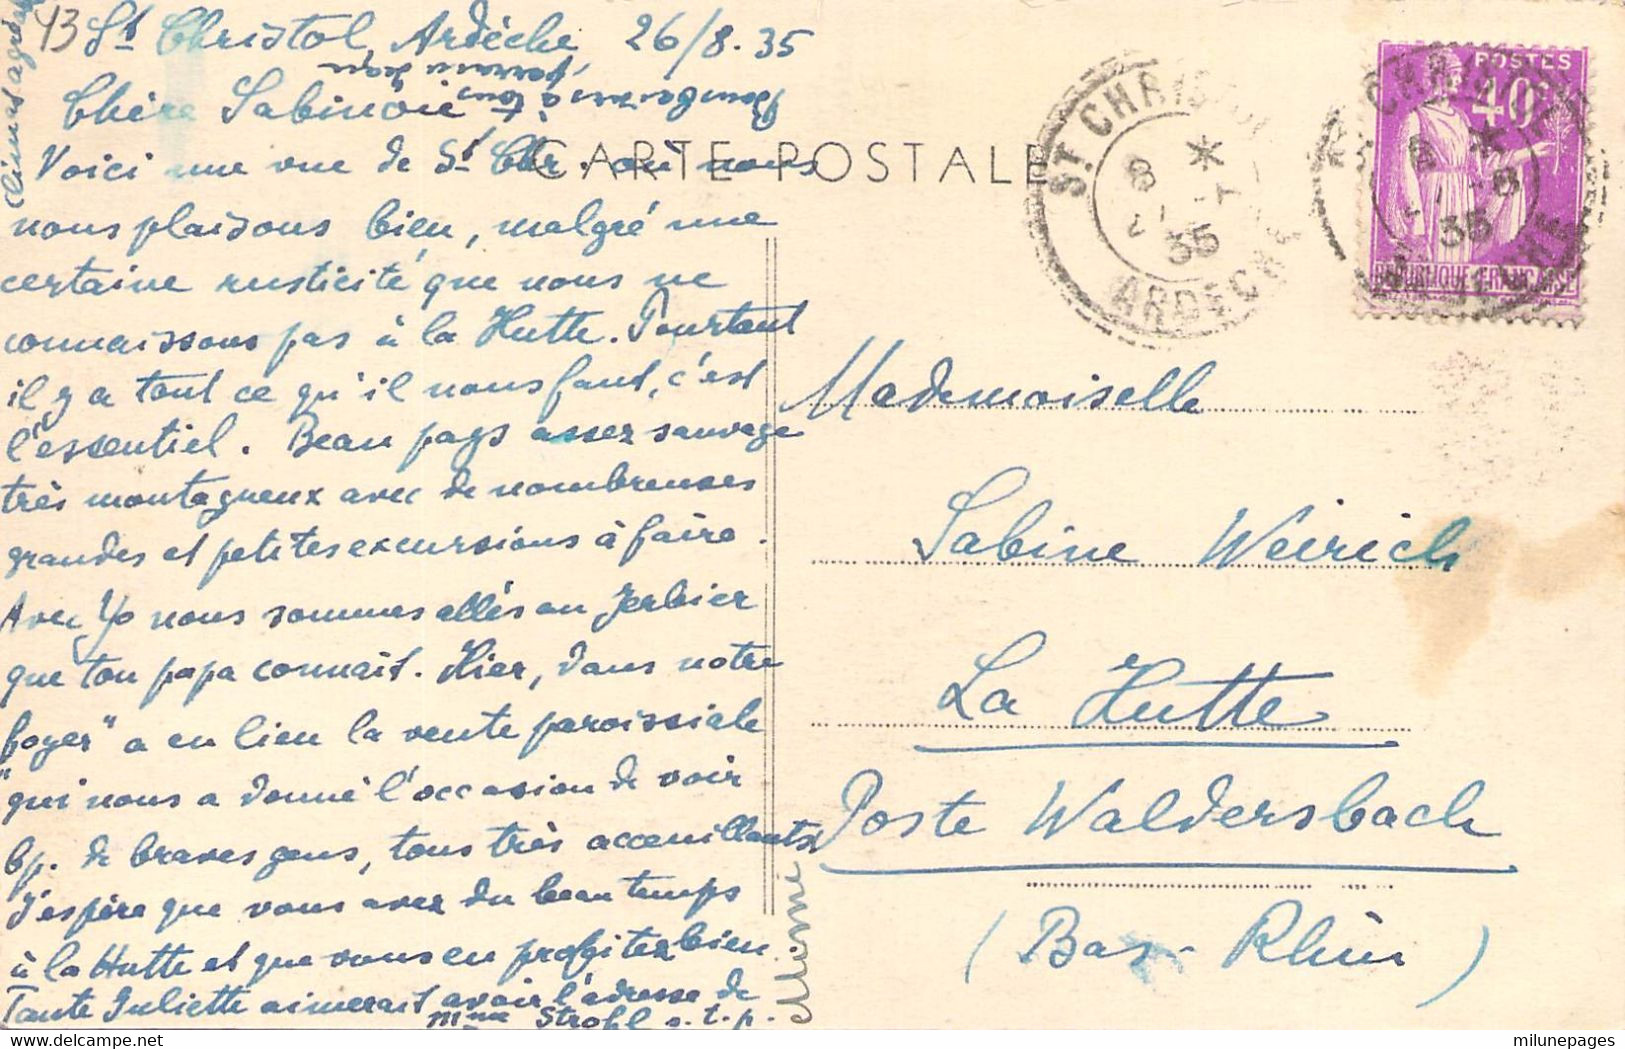 43
St Christol, Ardèche, 26/8.35
Chère Sabinoie
Voici une vue de St Chr. où nous
nous plaisons bien, malgré une
certaine rusticité que nous ne
connaissons pas à la Hutte. Pourtant
il y a tout ce qu'il nous faut, c'est
l'essentiel. Beau pays assez sauvage
très montagneux avec de nombreuses
grandes et petites excursions à faire.
Avec Yo nous sommes allés au Jerbier
que ton papa connaît. Hier, dans notre
"foyer" a eu lieu la vente paroissiale
qui nous a donné l'occasion de voir
bp. de braves gens, tous très accueillants
J'espère que vous avez du beau temps
à la Hutte et que vous en profitez bien.
Tante Juliette aimerait avoir l'adresse de
Mme Strohl s.t.p.
Bons baisers à tous
CARTE POSTALE
ST CHRISTOL
8
35
ARDÈCHE
POSTES
40c
REPUBLIQUE FRANÇAISE
Mademoiselle
Sabine Weirich
La Hutte
Poste Waldersbach
(Bas-Rhin)
milunepages